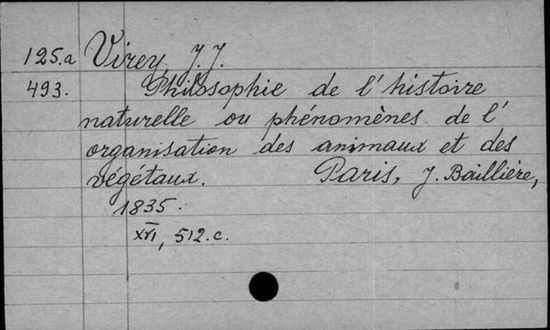 125.a Virey J. J.
493. Philosophie de l'histoire
naturelle ou phénomènes de l'
organisation des animaux et des
végétaux. Paris, J. Baillière,
1835.
XVI, 512.c.